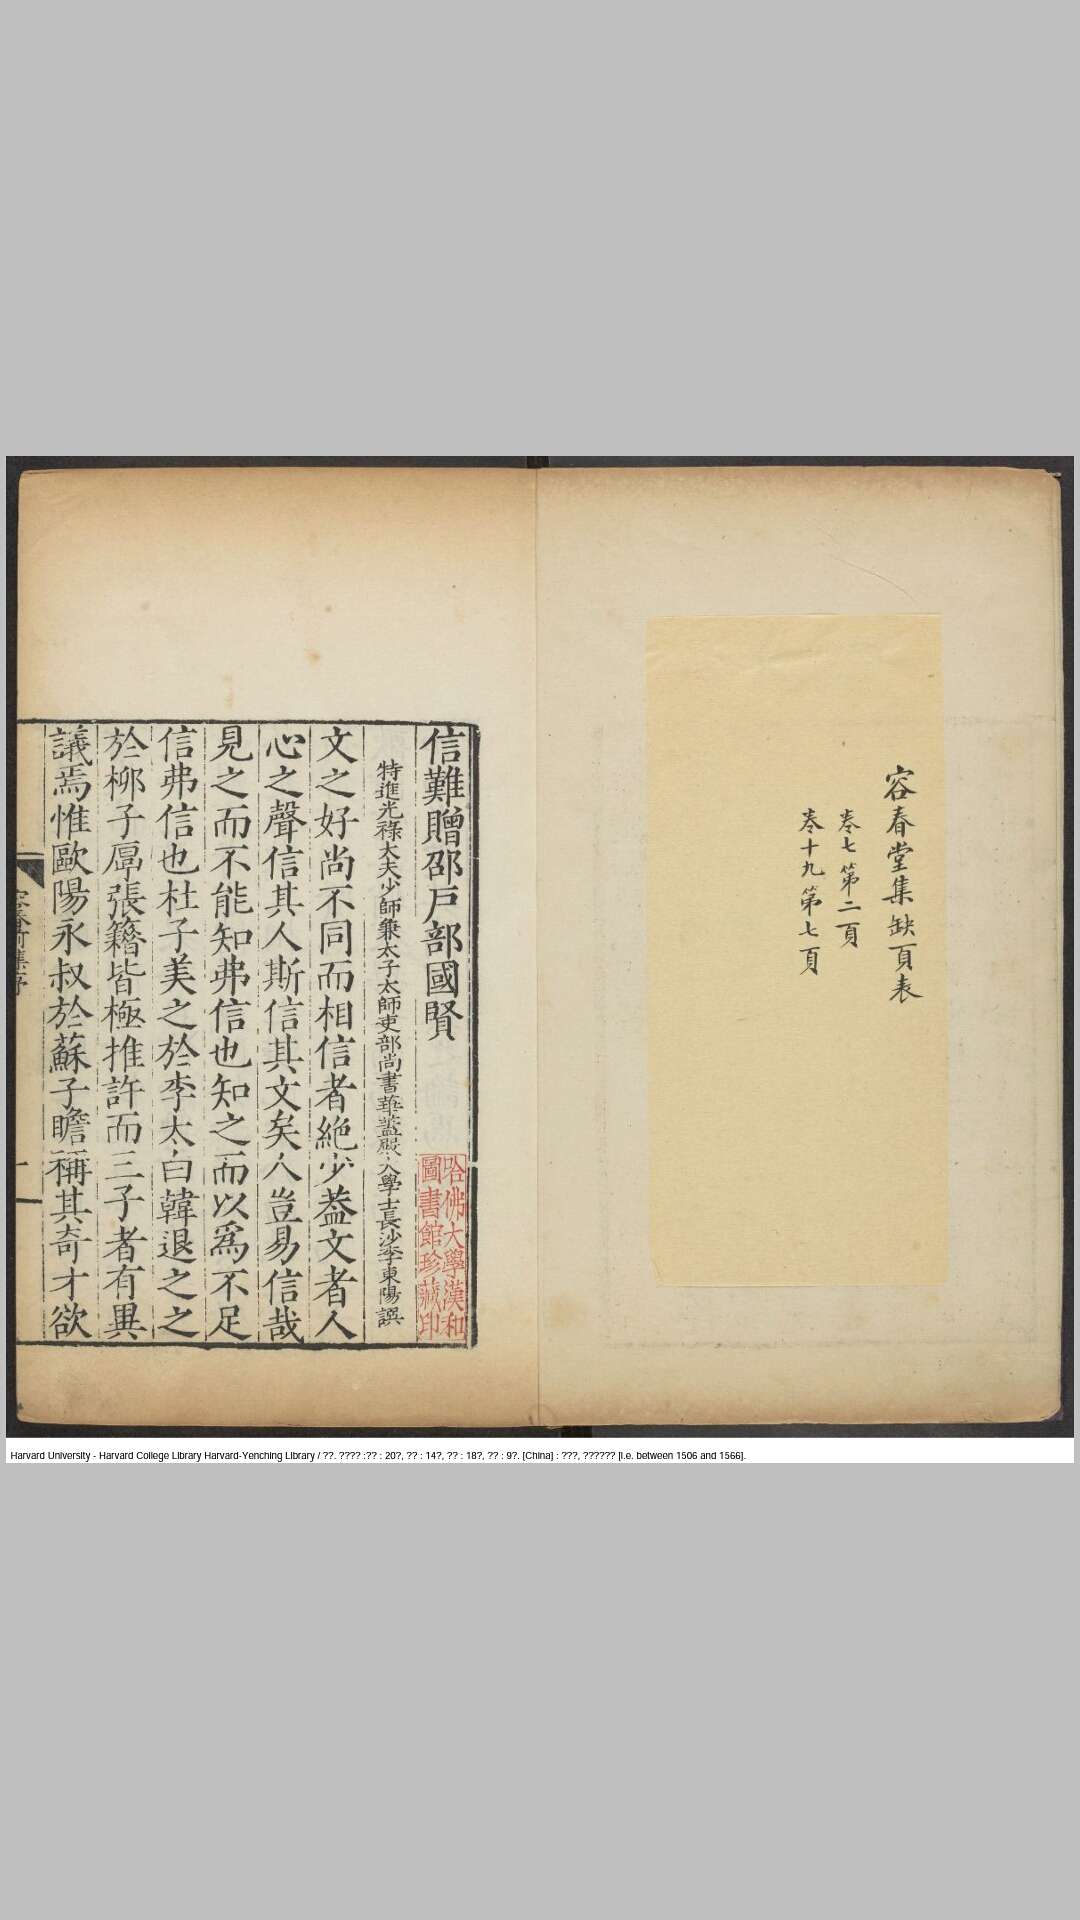 容春堂集缺頁表
卷七第二頁
卷十九第七頁
信難贈邵戶部國賢
哈佛大學漢和
圖書館珍藏印
特進光祿大夫少師兼太子太師吏部尚書華蓋殿大學士長沙李東陽譔
文之好尚不同而相信者絶少葢文者人
心之聲信其人斯信其文矣人豈易信哉
見之而不能知弗信也知之而以爲不足
信弗信也杜子美之於李太白韓退之之
於柳子厚張籍皆極推許而三子者有異
議焉惟歐陽永叔於蘇子瞻稱其奇才欲
容春前集序
一
Harvard University - Harvard College Library Harvard-Yenching Library / ??. ???? :?? : 20?, ?? : 14?, ?? : 18?, ?? : 9?. [China] : ???, ?????? [i.e. between 1506 and 1566].